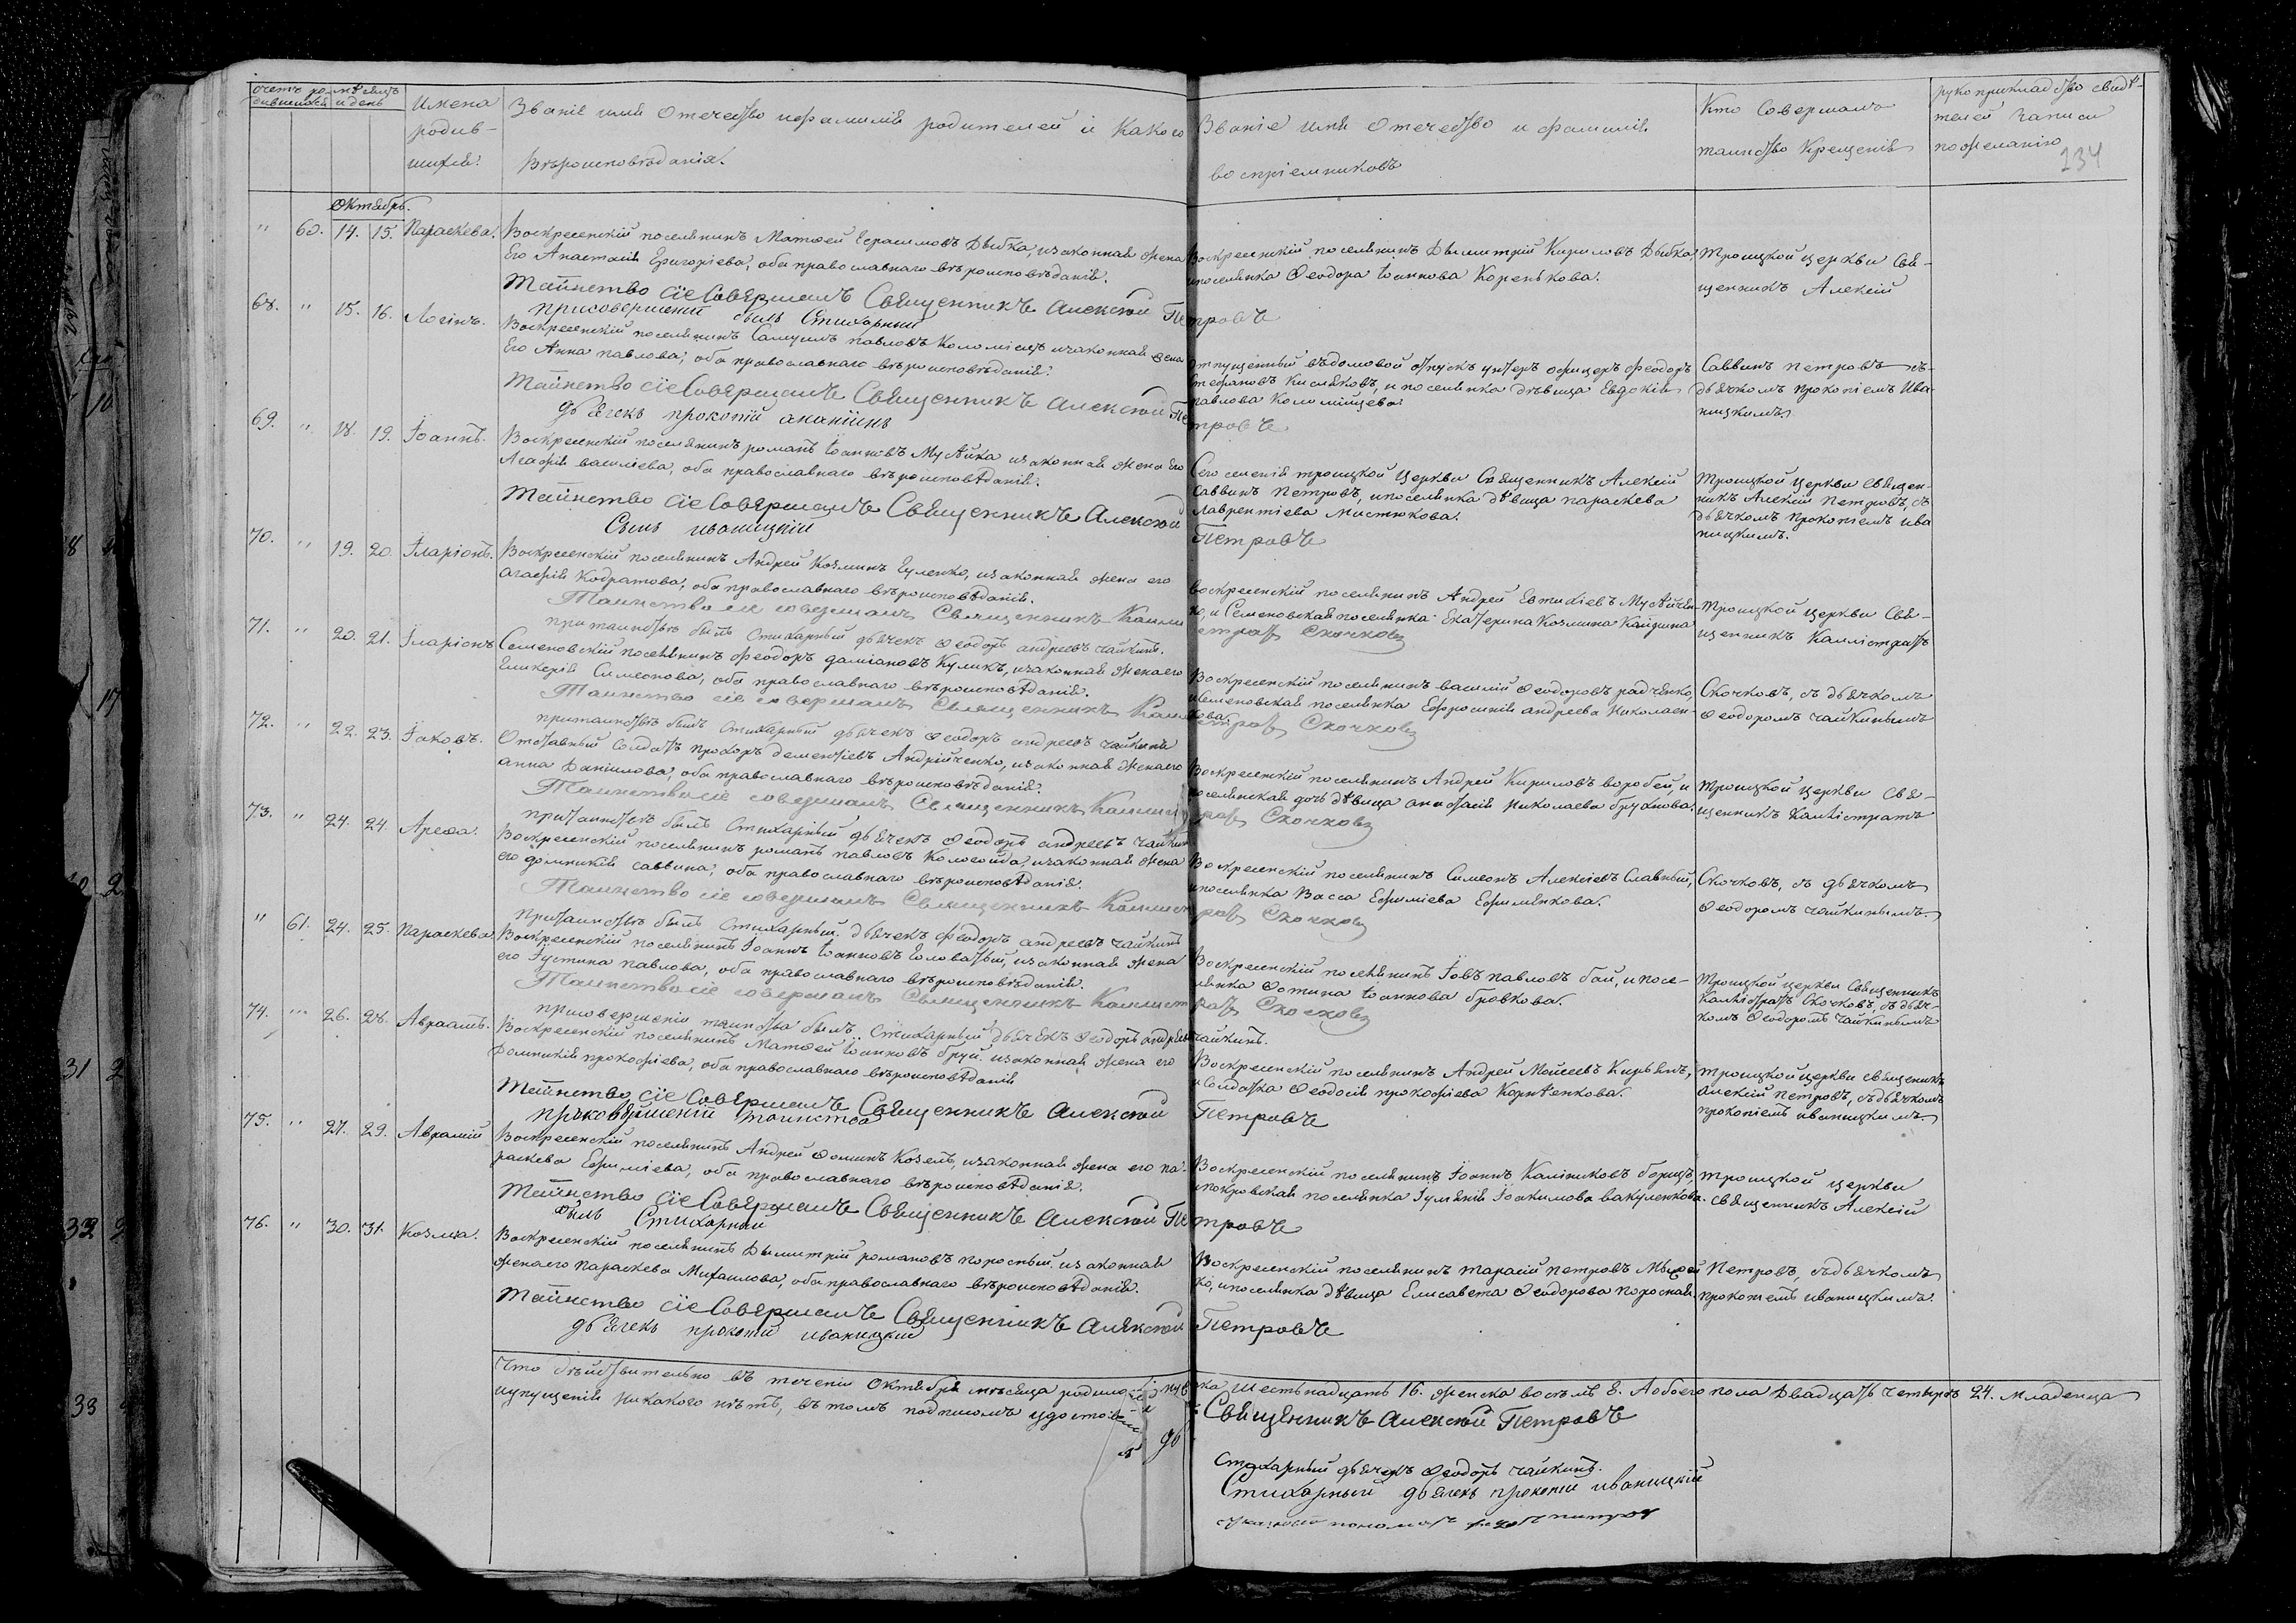 счетъ ро- мѣсяцъ
дившихся и день
Имена
родив-
шихся.
Званіе имя отечество и фамилія родителей и какого
вѣроисповѣданія.
Званіе имя отечество и фамилія
воспріемниковъ
Кто совершалъ
таинство крещенія
рукоприкладство свидѣ-
телей записи
по желанію
234
Октябрь.
" 60. 14. 15. Параскева.
Воскресенскій поселянинъ Матѳей Герасимовъ Дыбка, и законная жена
Его Анастасія Григоріева, оба православнаго вѣроисповѣданія.
Таинство сіе Совершалъ Священникъ Алексѣй Петровъ
Воскресенскій поселянинъ Дымитрій Кириловъ Дыбка
и поселянка Ѳеодора Іоаннова Коренькова.
Троицкой церкви Свя-
щенникъ Алексій
68. " 15. 16. Логінъ.
былъ Стихарный
Воскресенскій поселянинъ Самуилъ Павловъ Коломіецъ и законная жена
Его Анна Павлова, оба православнаго вѣроисповѣданія.
Таинство сіе Совершалъ Священникъ Алексѣй Петровъ
дьячекъ прокопій
Отпущенный въ домовой отпускъ унтеръ офицеръ Ѳеодоръ
Стефановъ Кисляковъ, и поселянка дѣвица Евдокія
Павлова Коломійцева.
Саввинъ Петровъ съ
дьячкомъ Прокопіемъ Ива-
ницкимъ.
69. " 18. 19. Іоаннъ.
Воскресенскій поселянинъ Романъ Іоанновъ Мусѣйка и законная жена Его
Агафія Василіева, оба православнаго вѣроисповѣданія.
Таинство сіе Совершалъ Священникъ Алексѣй Петровъ
иваницкій
Сего селенія Троицкой церкви Священникъ Алексій
Саввинъ Петровъ, и поселянка дѣвица Параскева
Лаврентіева Мистюкова.
Троицкой церкви Священ-
никъ Алексій Петровъ, съ
дьячкомъ Прокопіемъ Ива
ницкимъ.
70. " 19. 20. Іларіонъ.
Воскресенскій поселянинъ Андрей Козминъ Гуленко, и законная жена его
Агафія Кодратова, оба православнаго вѣроисповѣданія.
Таинство сіе совершалъ Священникъ Каллистратъ Скочковъ
при таинствѣ былъ Стихарный дьячекъ Ѳеодоръ Андреевъ Чайкинъ.
Воскресенскій поселянинъ Андрей Евтихіевъ Мусѣйчен-
ко, и Семеновская поселянка Екатерина Козмина
Троицкой церкви Свя-
щенникъ Каллістратъ
71. " 20. 21. Іларіонъ
Семеновскій поселянинъ Ѳеодоръ Даміановъ Куликъ, и законная жена его
Гликерія Симеонова, оба православнаго вѣроисповѣданія.
Таинство сіе совершалъ Священникъ Каллистратъ Скочковъ
при таинствѣ былъ Стихарный дьячекъ Ѳеодоръ Андреевъ Чайкинъ
Воскресенскій поселянинъ Василій Ѳеодоровъ Радченко,
и Семеновская поселянка Евфросинія Андреева Николаен-
кова.
Скочковъ, съ дьячкомъ
Ѳеодоромъ Чайкинымъ
72. " 22. 23. Іаковъ.
Отставный солдатъ Прохоръ Дементіевъ Андрійченко, и законная жена его
Анна Даніилова, оба православнаго вѣроисповѣданія.
Таинство сіе совершалъ Священникъ Каллистратъ Скочковъ
при таинствѣ былъ Стихарный дьячекъ Ѳеодоръ Андреевъ Чайкинъ
Воскресенскій поселянинъ Андрей Кириловъ Воробей, и
поселянская дочь дѣвица Анастасія Николаева Глухнова.
Троицкой церкви Свя-
щенникъ Каллістратъ
73. " 24. 24. Ареѳа.
Воскресенскій поселянинъ Романъ Павловъ Кологойда, и законная жена
его Домникія Саввина, оба православнаго вѣроисповѣданія.
Таинство сіе совершалъ Священникъ Каллистратъ Скочковъ
при таинствѣ былъ Стихарный дьячекъ Ѳеодоръ Андреевъ Чайкинъ
Воскресенскій поселянинъ Симеонъ Алексіевъ Славный,
и поселянка Васса Ефиміева Ефименкова.
Скочковъ, съ дьячкомъ
Ѳеодоромъ Чайкинымъ.
" 61. 24. 25. Параскева
Воскресенскій поселянинъ Іоаннъ Іоанновъ Головатый, и законная жена
его Іустина Павлова, оба православнаго вѣроисповѣданія.
Таинство сіе совершалъ Священникъ Каллистратъ Скочковъ
при совершеніи таинства былъ Стихарный дьячекъ Ѳеодоръ Андреевъ Чайкинъ.
Воскресенскій поселянинъ Іовъ Павловъ Бай, и посе-
лянка Фотина Іоаннова Бровкова.
Троицкой церкви Священникъ
Каллістратъ Скочковъ, съ дьяч-
комъ Ѳеодоромъ Чайкинымъ
74. " 26. 28. Авраамъ.
Воскресенскій поселянинъ Матѳей Іоанновъ Бруй и законная жена его
Домникія Прокофіева, оба православнаго вѣроисповѣданія
Таинство сіе Совершалъ Священникъ Алексѣй Петровъ
при совершеніи таинства
Воскресенскій поселянинъ Андрей Моѵсеевъ Кирьянъ,
и солдатка Ѳеодосія Прокофіева Корнѣенкова.
Троицкой церкви священникъ
Алексій Петровъ, съ дьячкомъ
Прокопіемъ Иваницкимъ.
75. " 27. 29. Аврамій
Воскресенскій поселянинъ Андрей Фоминъ Козелъ, и законная жена его Па-
раскева Ефиміева, оба православнаго вѣроисповѣданія.
Таинство сіе Совершалъ Священникъ Алексѣй Петровъ
былъ Стихарный
Воскресенскій поселянинъ Іоаннъ Калиниковъ Борецъ,
и покровская поселянка Іуліанія Іоакимова Вакуленкова.
Троицкой церкви
священникъ Алексій
76. " 30. 31. Козма.
Воскресенскій поселянинъ Дымитрій Романовъ Поросный и законная
жена его Параскева Михаилова, оба православнаго вѣроисповѣданія.
Таинство сіе Совершалъ Священникъ Алексѣй Петровъ
дьячекъ прокопій иваницкій
Воскресенскій поселянинъ Тарасій Петровъ
ко, и поселянка дѣвица Елисавета Ѳеодорова Поросная.
Петровъ, съ дьячкомъ
Прокопіемъ Иваницкимъ.
Что дѣйствительно въ теченіи Октября мѣсяца родилось муж
ска шестьнадцать 16. женска восѣмъ 8. А обоего пола двадцать четыре 24. младенца
и упущенія никакого нѣтъ, въ томъ подписомъ удостовѣряемъ
Священникъ Алексѣй Петровъ
Стихарный дьячекъ Ѳеодоръ Чайкинъ.
Стихарный дьячекъ прокопій иваницкій